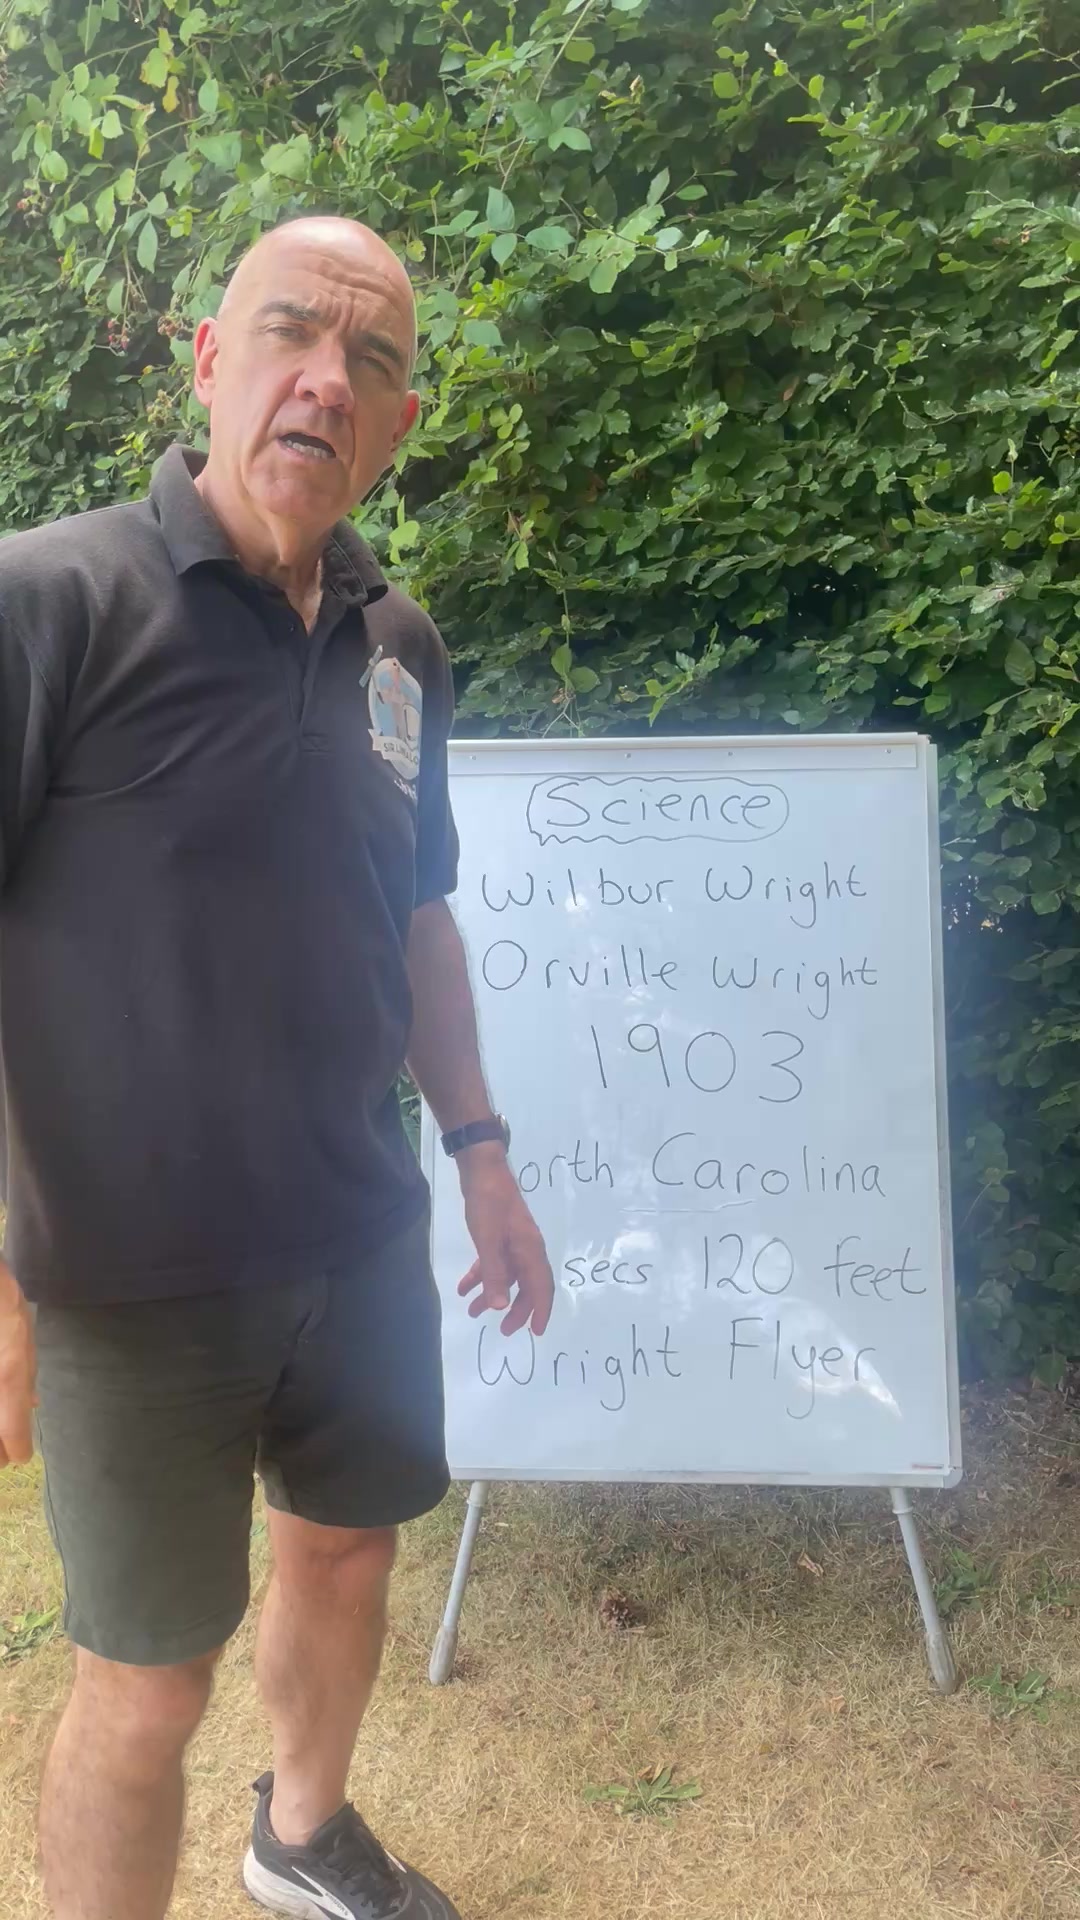 Science
Wilbur Wright
Orville Wright
1903
orth Carolina
secs 120 feet
Wright Flyer